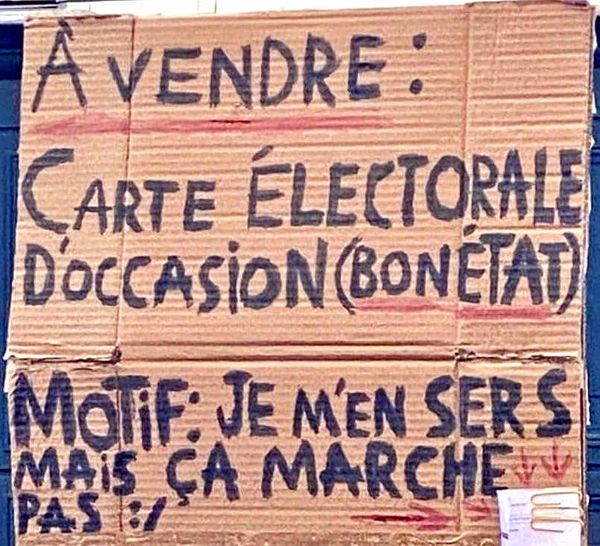 À VENDRE :
CARTE ÉLECTORALE
D'OCCASiON (BON ÉTAT)
MOTiF : JE M'EN SERS
MAiS ÇA MARCHE
PAS :/